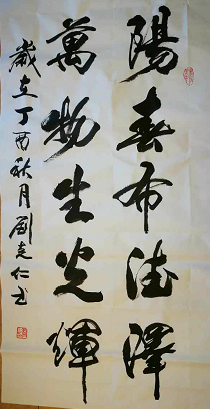 陽春布德澤
萬物生光輝
歲在丁酉秋月劉克仁書